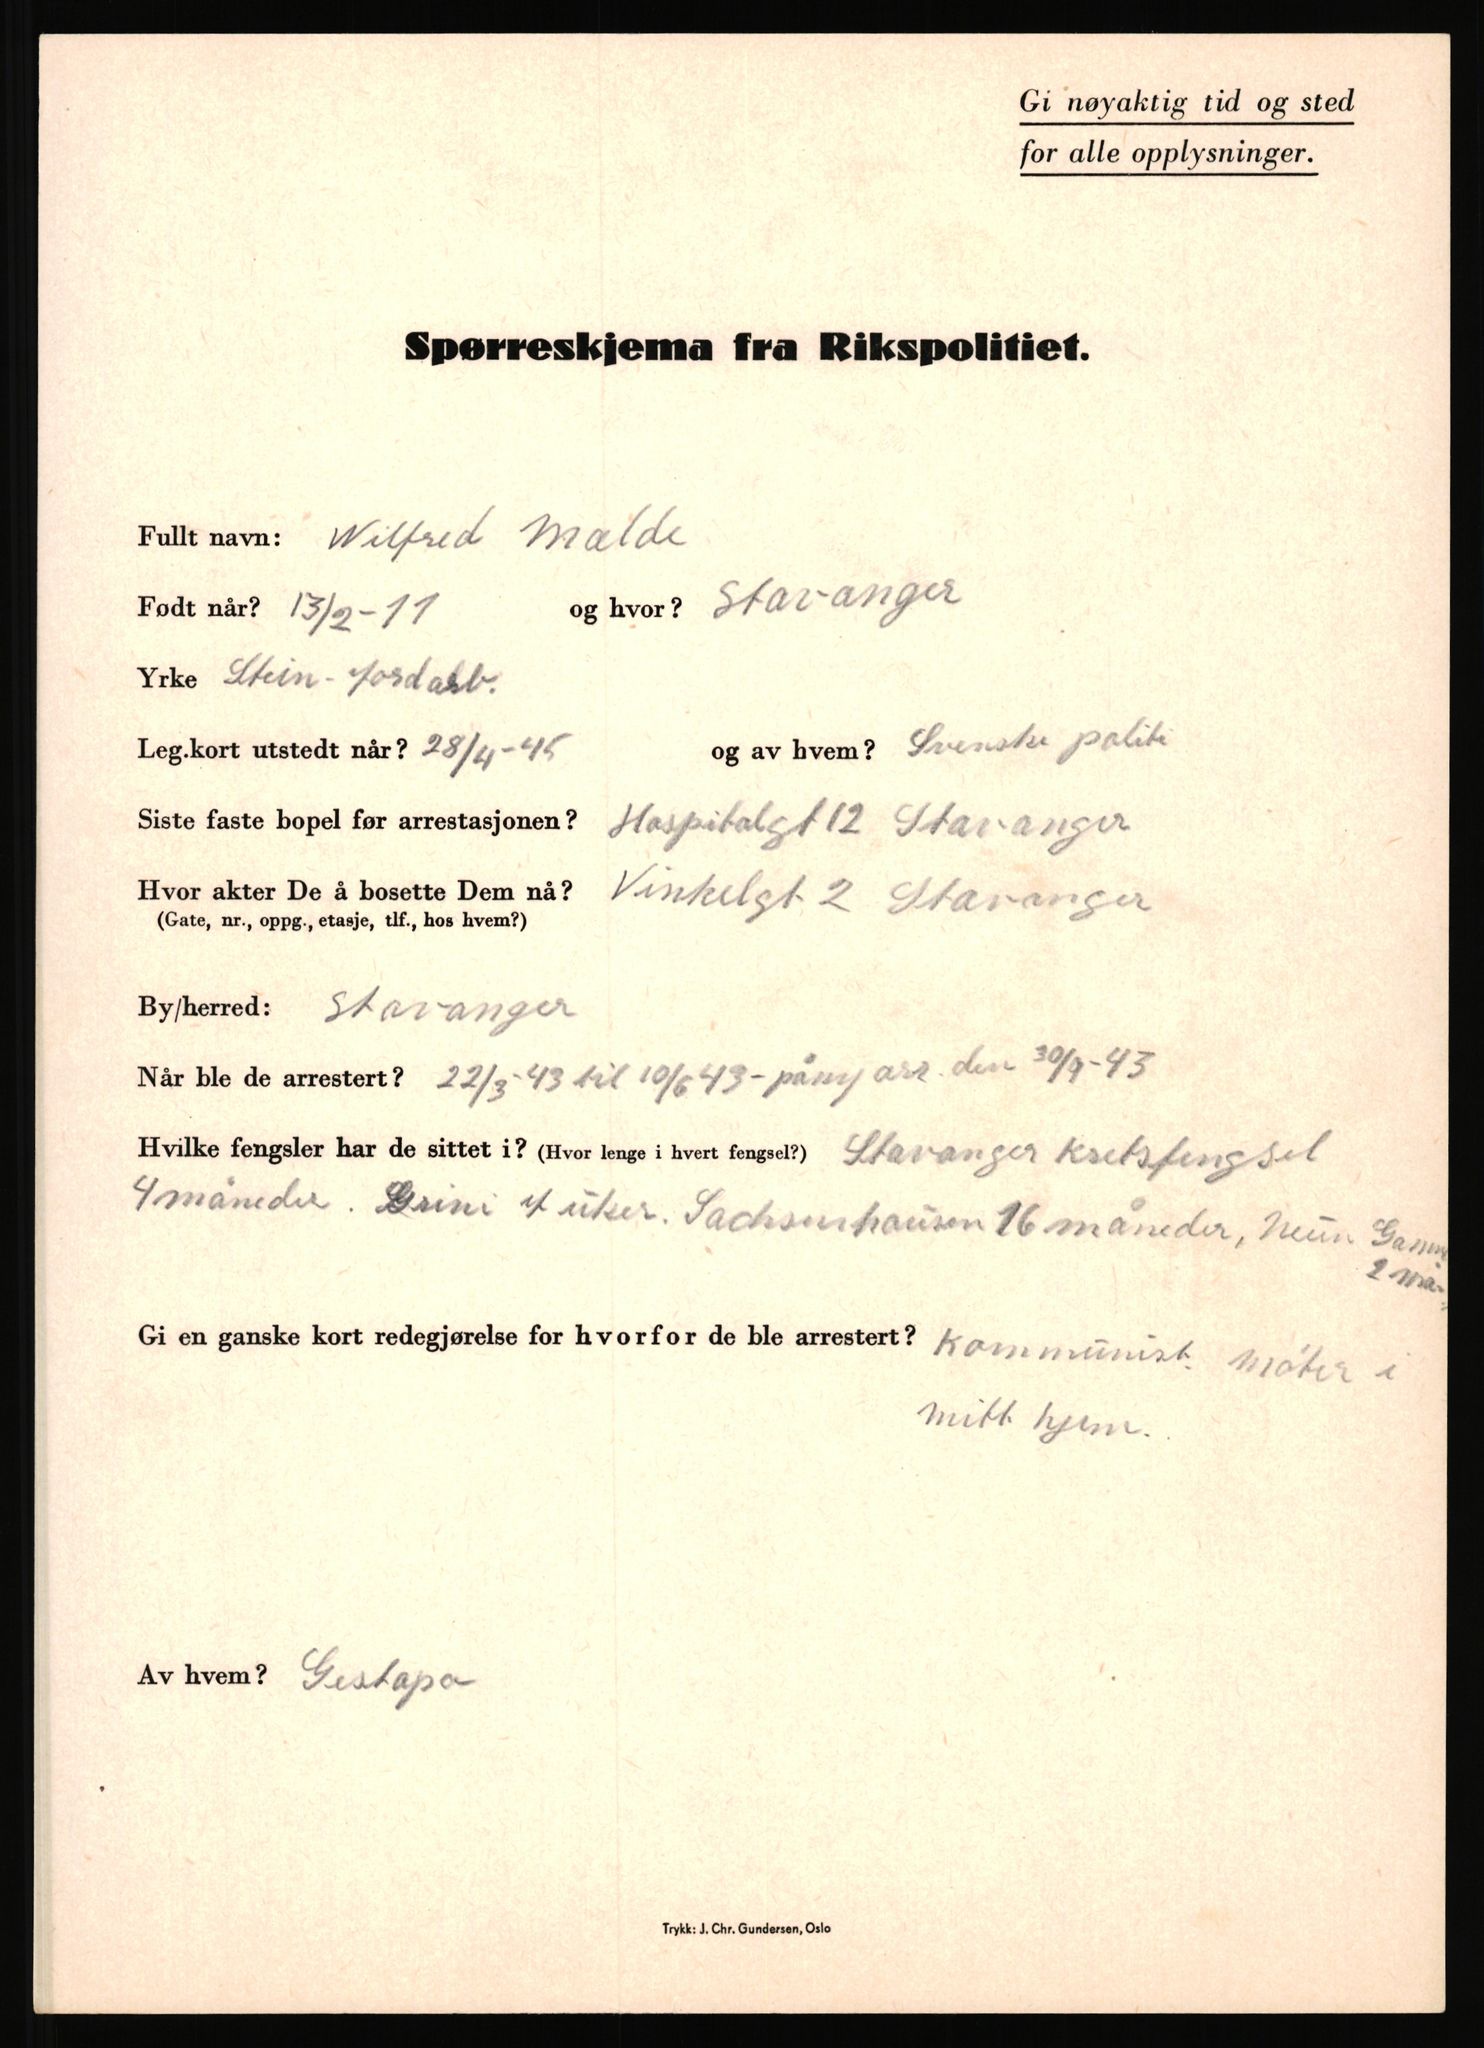 Gi nøyaktig tid og sted
for alle opplysninger.
Spørreskjema fra Rikspolitiet.
Fullt navn: Wilfred Malde
Født når? 13/2-11 og hvor? Stavanger
Yrke Stein-jordarb.
Leg.kort utstedt når? 28/4-45 og av hvem? Svenske politi
Siste faste bopel før arrestasjonen? Hospitalgt 12 Stavanger
Hvor akter De å bosette Dem nå? Vinkelgt 2 Stavanger
(Gate, nr., oppg., etasje, tlf., hos hvem?)
By/herred: Stavanger
Når ble de arrestert? 22/3-43 til 10/6 43- påny arr. den 30/9-43
Hvilke fengsler har de sittet i? (Hvor lenge i hvert fengsel?) Stavanger Kretsfengsel
4 måneder. Grini 4 uker. Sachsenhausen 16 måneder, Neun Gamm
2 må-
Gi en ganske kort redegjørelse for hvorfor de ble arrestert? Kommunist. Møter i
mitt hjem.
Av hvem? Gestapo
Trykk: J. Chr. Gundersen, Oslo